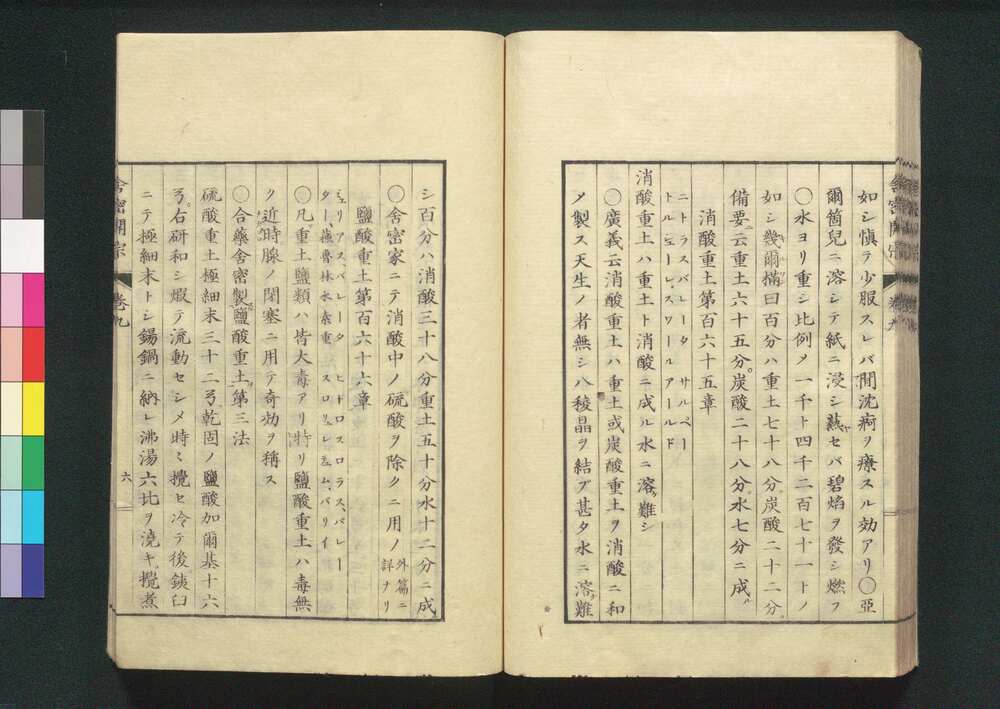 如シ愼テ少服スレバ間沈痾ヲ療スル効アリ〇亞
爾箇兒ニ溶シテ紙ニ浸シ熱セバ碧焰ヲ發シ燃フ
〇水ヨリ重シ比例メ一千ト四千二百七十一トノ
如シ幾爾満曰百分ハ重土七十八分炭酸二十二分
備要云重土六十五分炭酸二十八分水七分ニ成ル
消酸重土第百六十五章
ニトラスバレータ サルペー
トルシューレスワールアールド
消酸重土ハ重土ト消酸ニ成ル水ニ溶難シ
〇廣義云消酸重土ハ重土或炭酸重土ヲ消酸ニ和
メ製ス天生ノ者無シ八稜晶ヲ結ブ甚タ水ニ溶難
シ百分ハ消酸三十八分重土五十分水十二分ニ成
〇舍密家ニテ消酸中ノ硫酸ヲ除クニ用ノ 外篇ニ詳ナリ
鹽酸重土第百六十六章
ミュリアスバレータ ヒドロスロラスバレー
ター 蘓魯林水素重 スロリュレュム、バリイ
〇凡重土鹽類ハ皆大毒アリ特リ鹽酸重土ハ毒無
ク近時腺ノ閉塞ニ用テ奇効ヲ稱ス
〇合藥舍密製鹽酸重土第三法
硫酸重土極細末三十二弓乾固ノ鹽酸加爾基十六
弓右研和シ煆テ流動セシメ時ミ攪セ冷テ後銕臼
ニテ極細末トシ錫鍋ニ納レ沸湯六比ヲ澆キ攪煮
舍密開宗 巻九 六